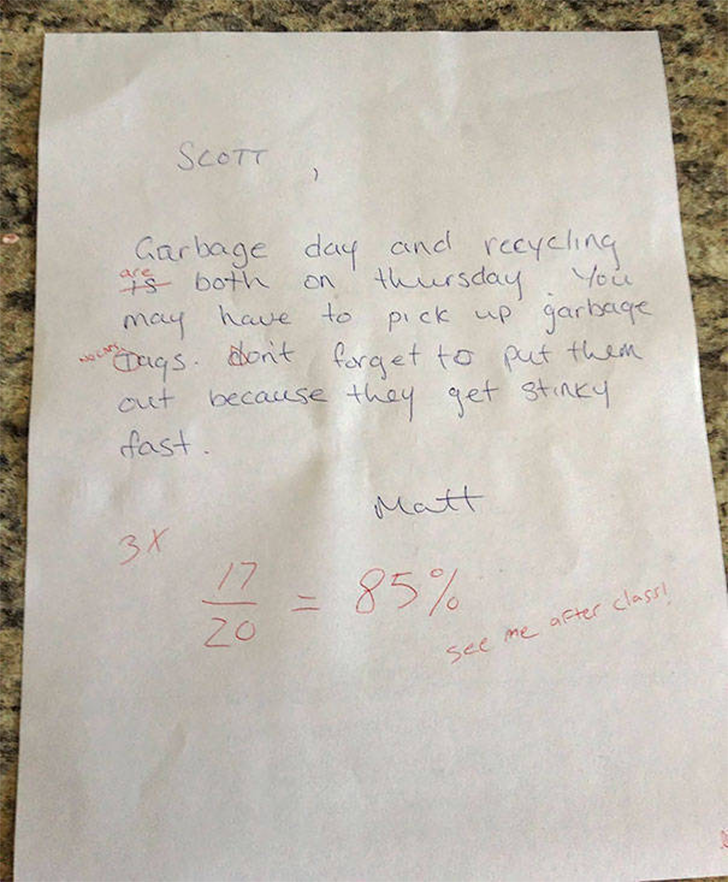 SCOTT ,
Garbage day and recycling
are
is both on thursday. You
may have to pick up garbage
no caps Tags. don't forget to put them
out because they get stinky
fast.
Matt
3X
17
20
= 85%
see me after class!